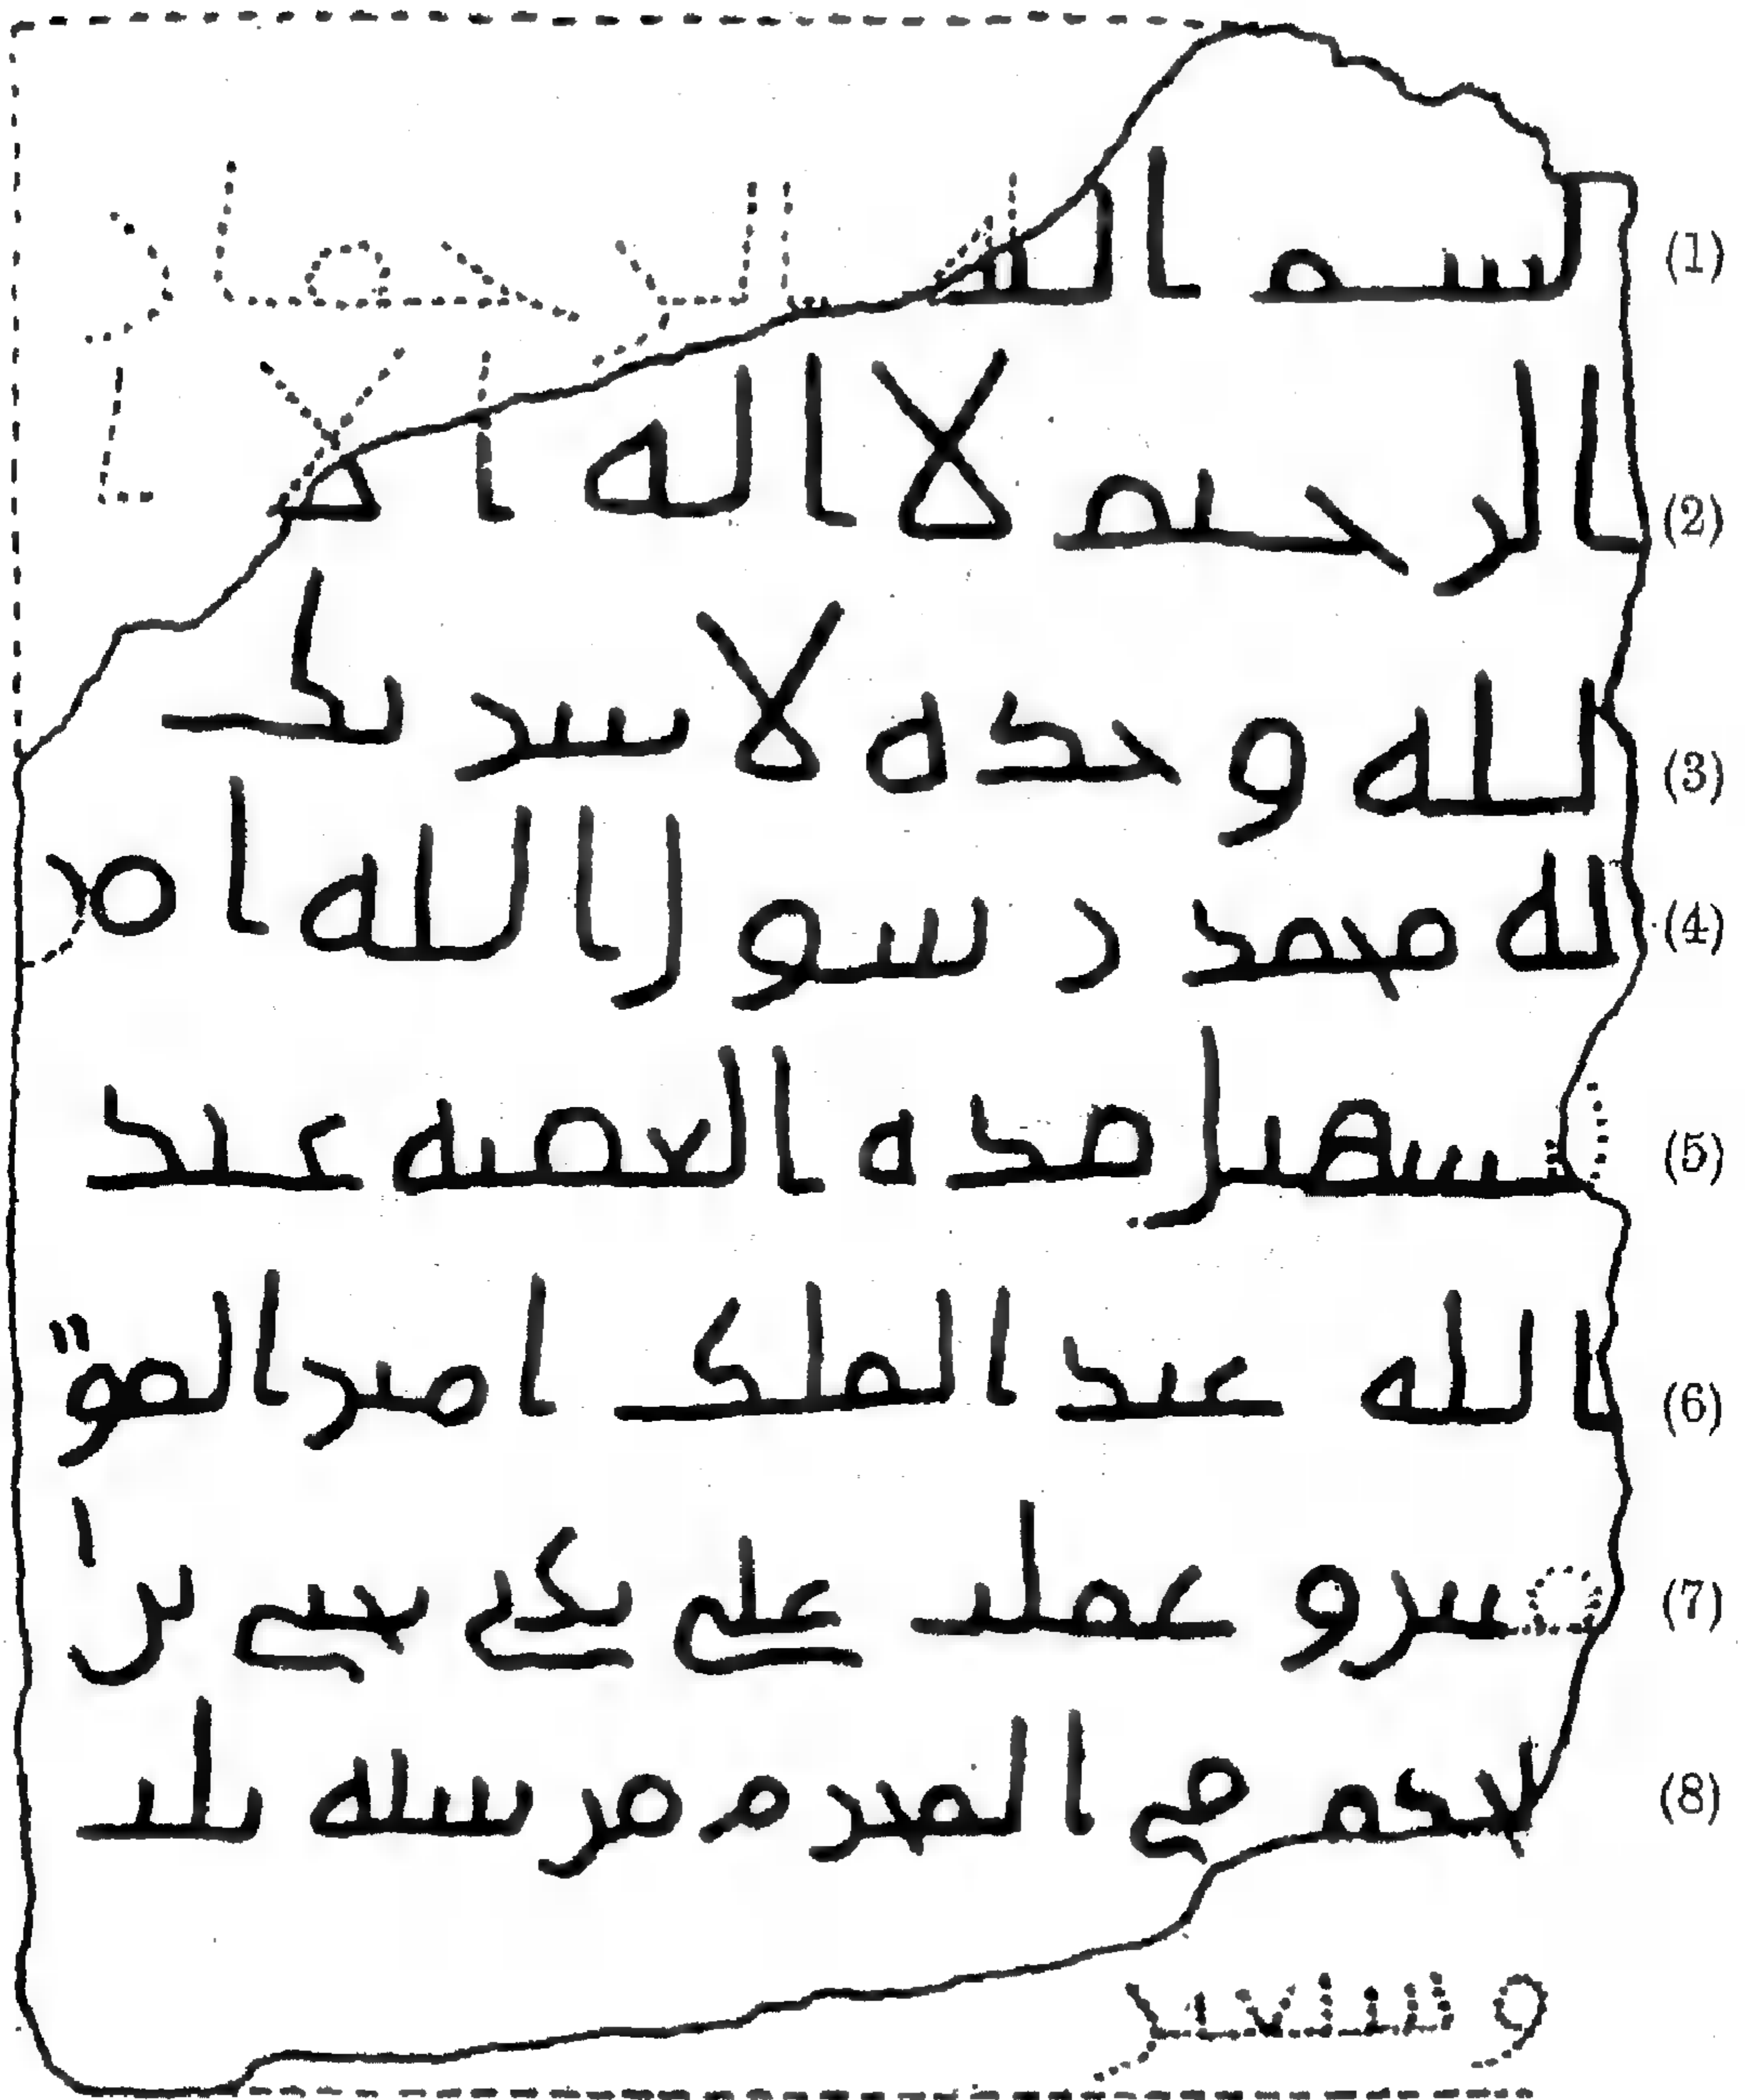 (1) بسم الله الرحمن
(2) الرحيم لا اله الا ا
(3) لله وحده لا شريك
(4) له محمد رسول الله امر
(5) بتسهيل هذه العقبة عبد
(6) الله عبد الملك امير المؤ
(7) منين و عملت على يدي يحيى بن ا
(8) لحكم في المحرم من سنة ثلث
و سبعين